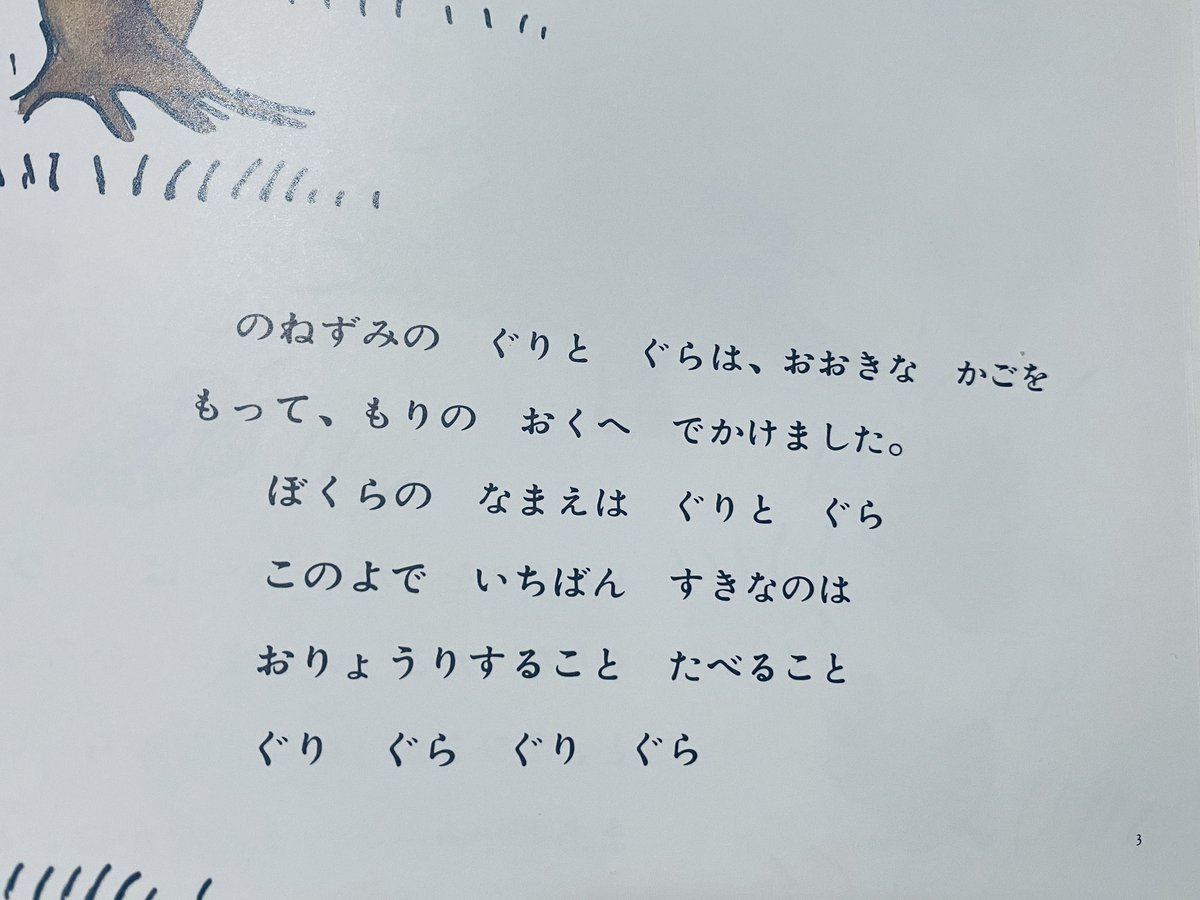 のねずみの　ぐりと　ぐらは、おおきな　かごを
もって、もりの　おくへ　でかけました。
ぼくらの　なまえは　ぐりと　ぐら
このよで　いちばん　すきなのは
おりょうりすること　たべること
ぐり　ぐら　ぐり　ぐら
3